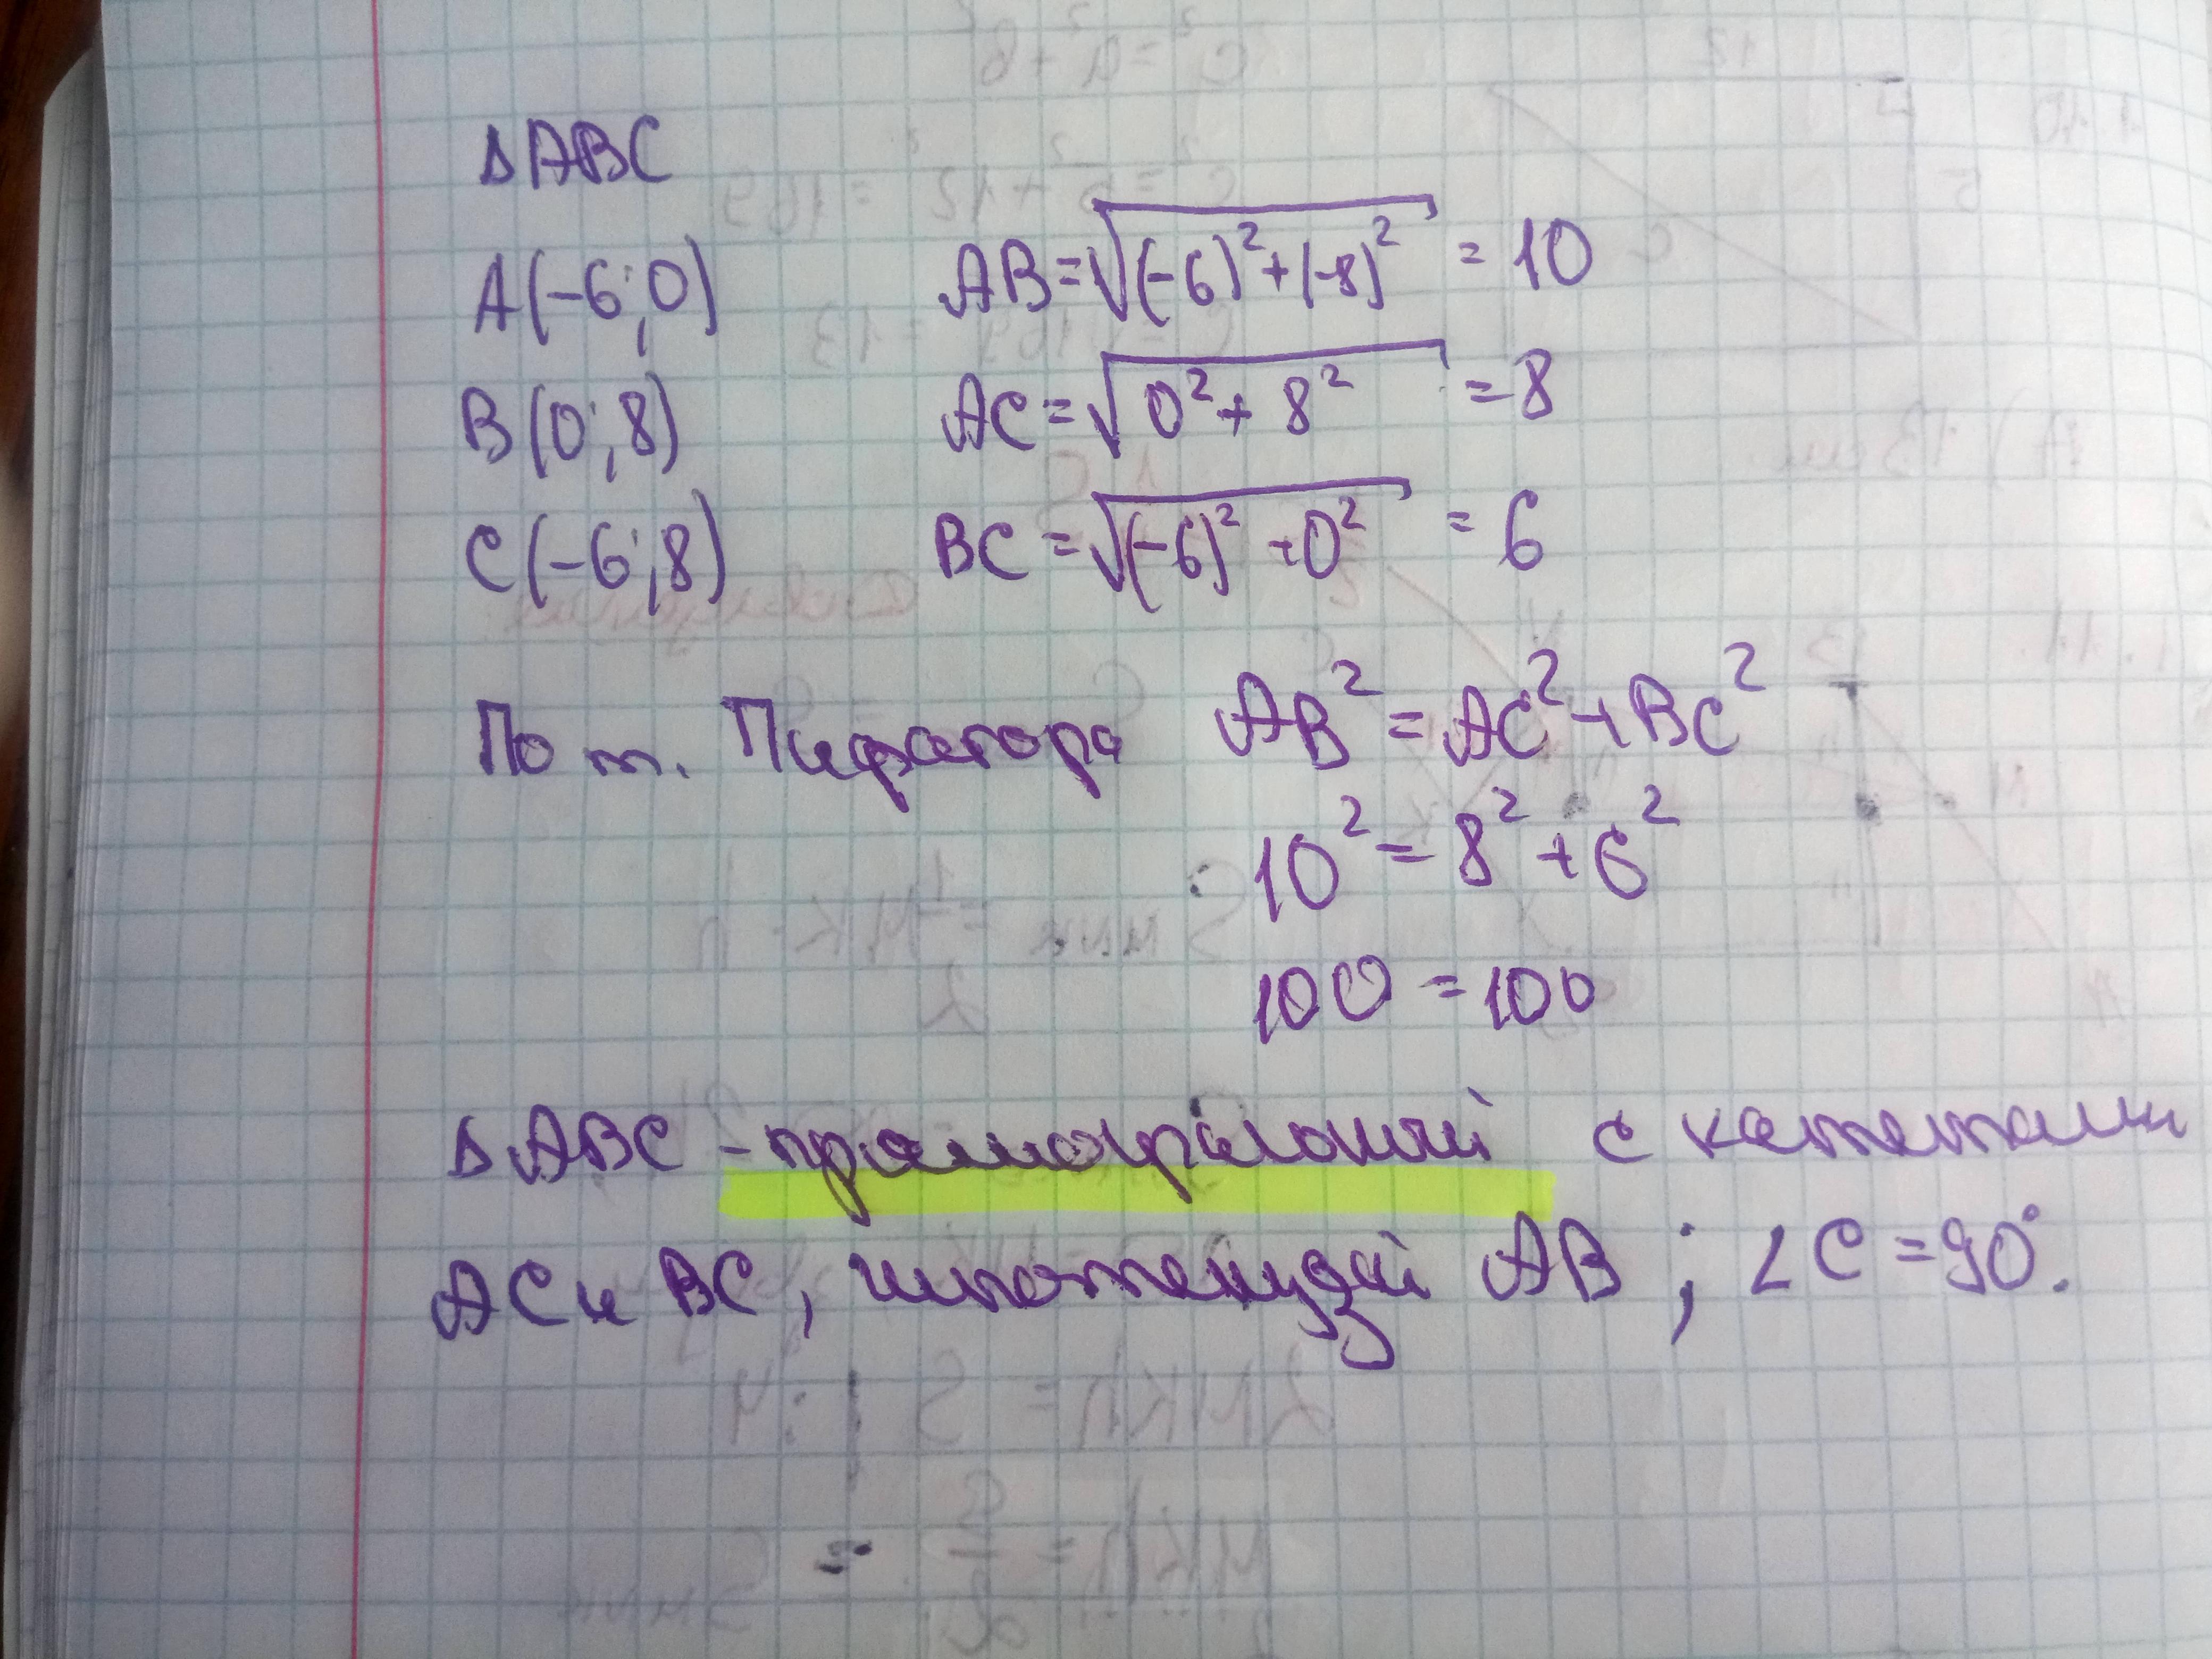 ΔABC
A(-6;0) AB=√(-6)²+(-8)² = 10
B(0;8) AC=√0²+8² =8
C(-6;8) BC=√(-6)²+0² = 6
По т. Пифагора AB²=AC²+BC²
10²=8²+6²
100=100
ΔABC -прямоугольный с катетами
AC и BC, гипотенузой AB; ∠C=90°.